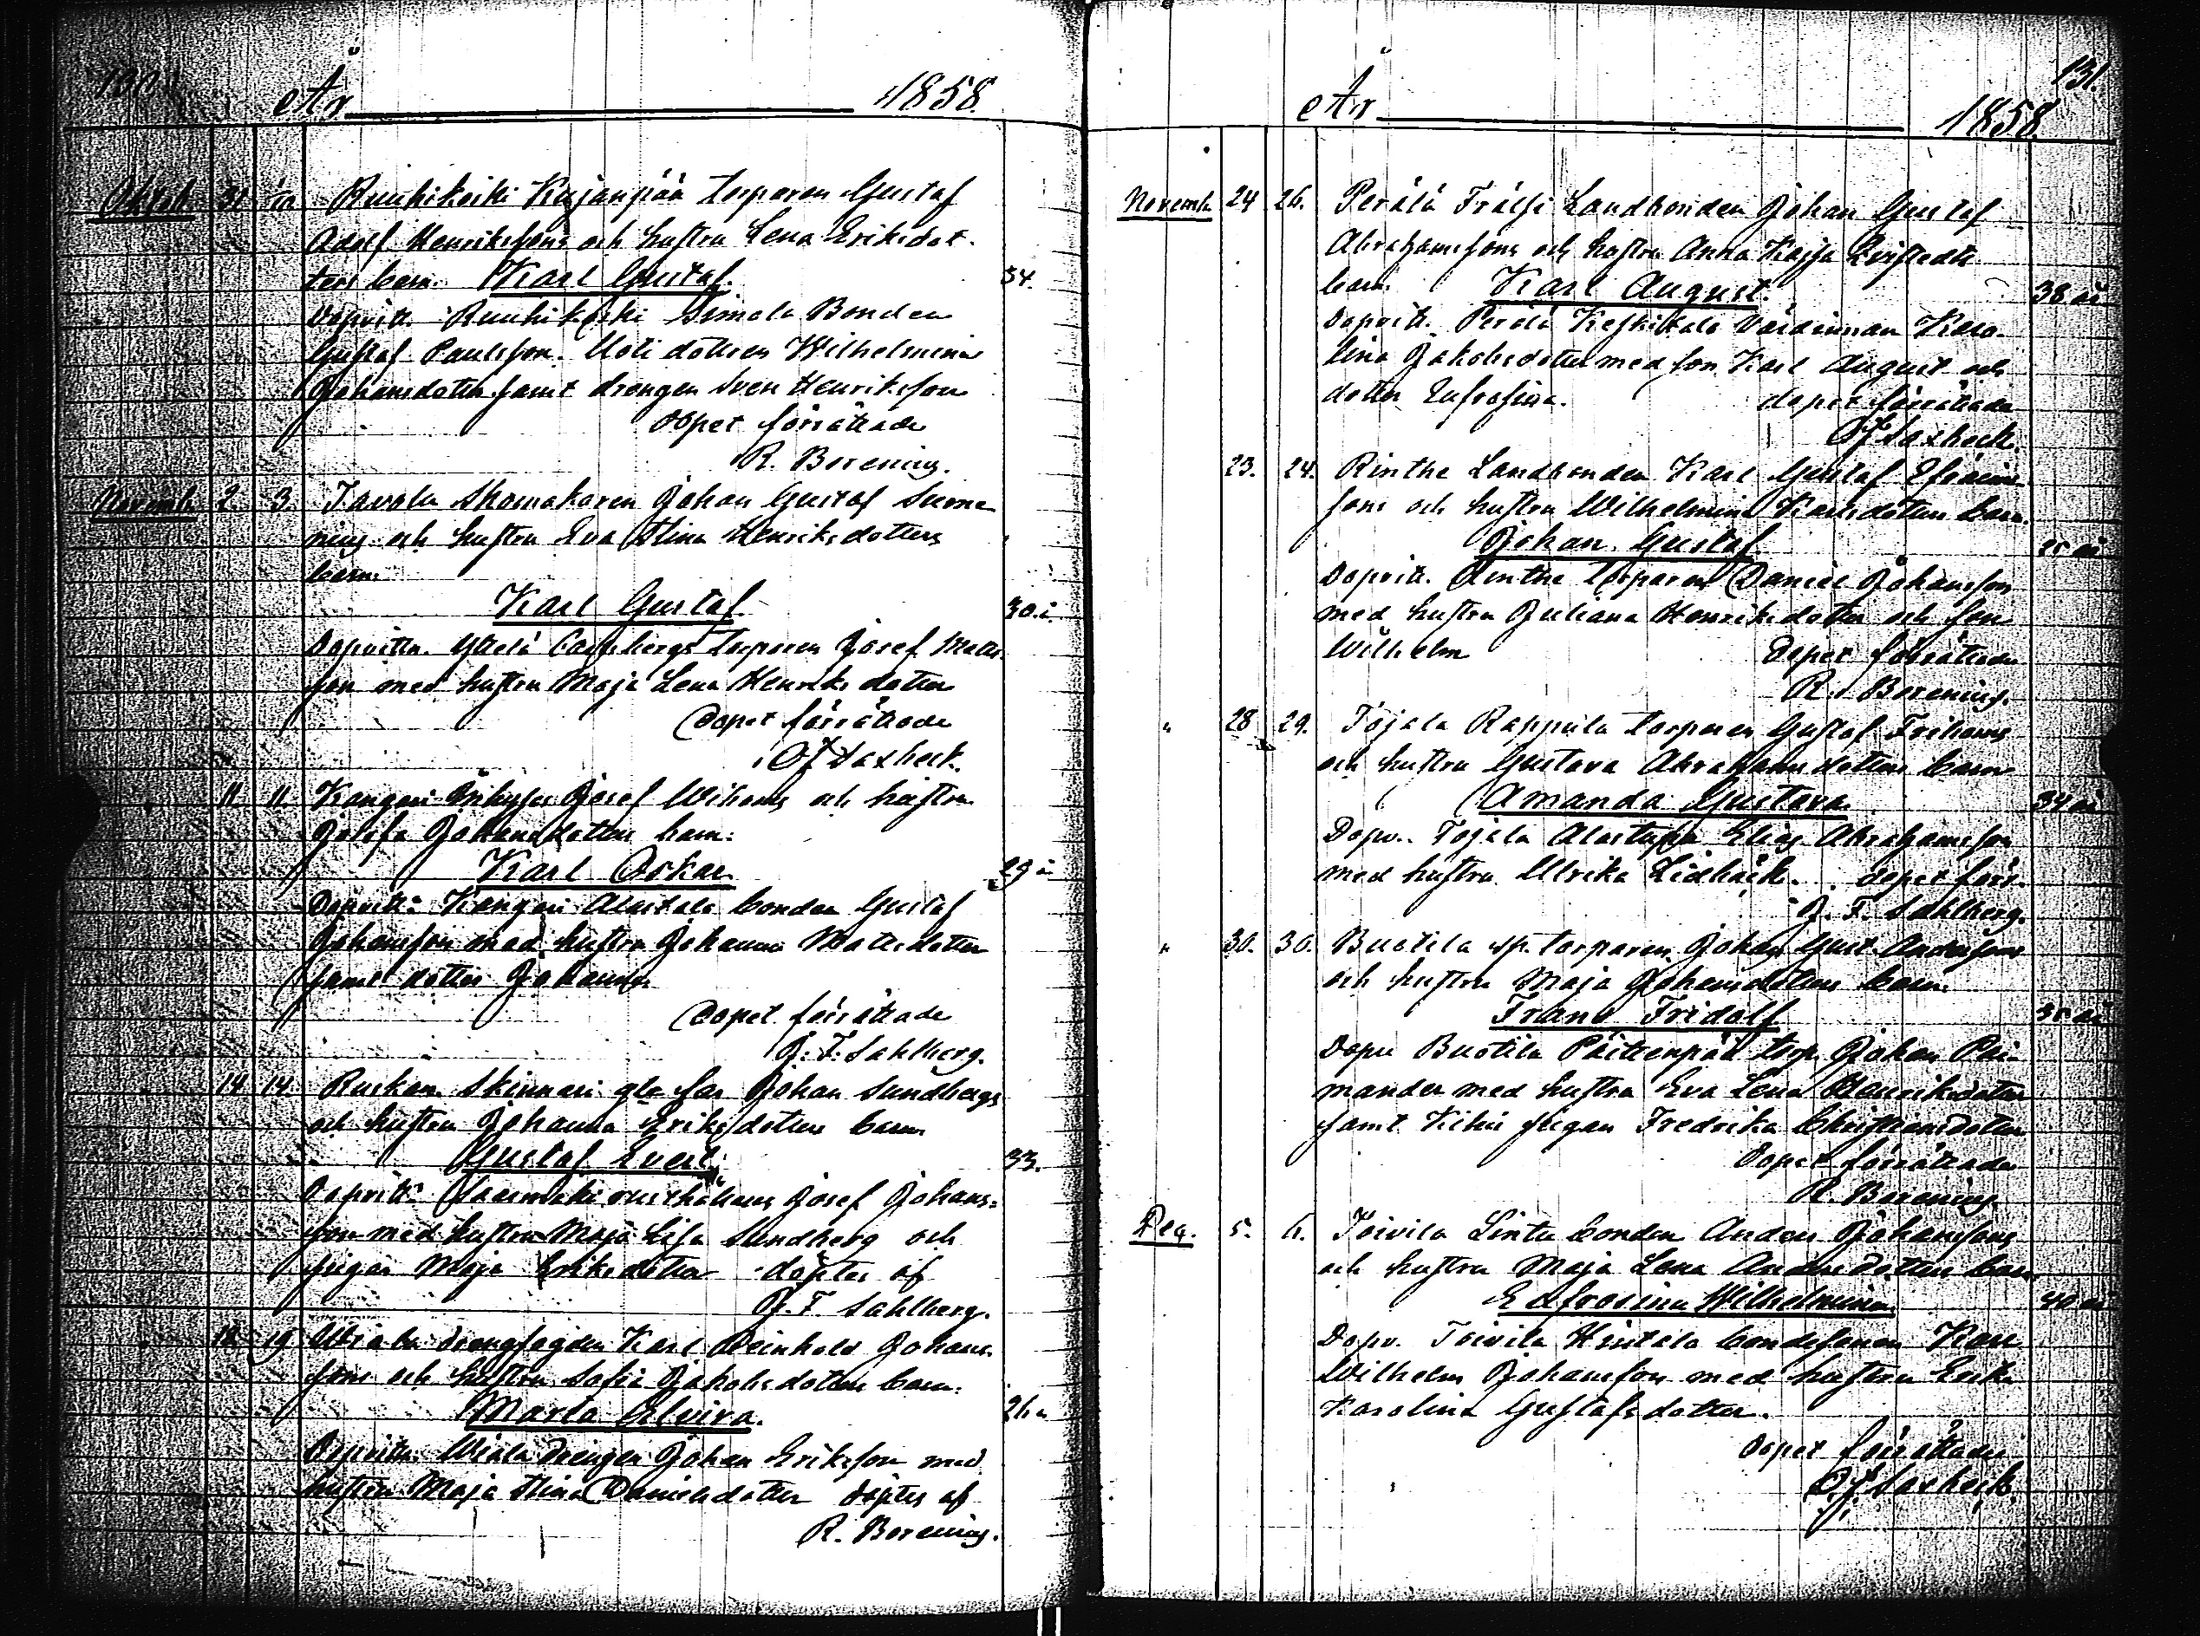 År 1858.
Oktob. 31 1/10 Ruuhikoski Kajanpää torparen Gustaf
Adolf Henrikssons och hustru Lena Eriksdot-
ters barn. Karl Gustaf. 34.
Dopvittn. Ruuhikoski Simola Bonden
Gustaf Paulsson. Uoti dottren Wilhelmina
Johansdotter samt drengen Sven Henriksson
Dopet förrättade
R. Borening.
Novemb. 2. 3. Tavola Skomakaren Johan Gustaf
och hustru Eva Stina Henriksdotters
barn.
Karl Gustaf 30.
Dopvittn. torparen Josef Matts-
son med hustru Maja Lena Henriksdotter
Dopet förrättade
Saxbeck.
11 11 Kangari Josef Wihans och hustru
Josefa Johansdotters barn:
Karl Oskar 29
Dopvitt: Kangari Alaitalo bonden Gustaf
Johansson med hustru Johanna Mattsdotter
samt dotter Johanna
Dopet förrättade
J. F. Sahlberg.
14 14. Skinnari Johan Sundbergs
och hustru Johanna Eriksdotters barn
Gustaf Evert 33.
Dopvitt: Josef Johans-
son med hustru Maja Lisa Sundberg och
pigan Maja Eriksdotter döptes af
J. F. Sahlberg.
18 19 Wiala drengfogden Karl Reinhold Johans-
sons och hustru Sofia Jakobsdotters barn.
Maria Elvira. 26
Dopvittn. Wiala Drengen Johan Eriksson med
hustru Maja Stina Danielsdotter döptes af
R. Borening.
131.
År 1858
Novemb. 24 26. Perälä Frälse Landbonden Johan Gustaf
Abrahamssons och hustru Anna Kajsa
barn. Karl August. 38 år
Dopvitt. Perälä Keskitalo Värdinnan Karo-
lina Jakobsdotter med son Karl August och
dotter Eufrosina. dopet förrättade
Saxbeck.
23. 24. Rinthe Landbonden Karl Gustaf Efraims-
sons och hustru Wilhelmina Karlsdotters barn.
Johan Gustaf 25 år
Dopvitt. Rinthe torparen Daniel Johansson
med hustru Juliana Henriksdotter och son
Wilhelm Dopet förrättade
R. Borening.
" 28 29. Töjala Rappula torparen Gustaf Frihams
och hustru Gustava Abrahamsdotters barn
Amanda Gustava 34 år
Dopv. Töjala Elias Abrahamsson
med hustru Ulrika Lidbäck. dopet förr.
J. F. Sahlberg.
" 30. 30. Buotila sp. torparen Johan Gust. Anderssons
och hustru Maja Johansdotters barn.
Frans Fridolf 35 år
Dopv Buotila torp. Johan Pai-
mander med hustru Eva Lena Henriksdotter
samt pigan Fredrika Christiansdotter
Dopet förrättade
R. Borening.
Dec. 5. 6. Toivila Lintu bonden Anders Johanssons
och hustru Maja Lena Andersdotters barn
Edfrosina Wilhelmina 40 år
Dopv. Toivila Hintala bondesonen Karl
Wilhelm Johansson med hustru Erika
Karolina Gustafsdotter.
Dopet förrättade
Saxbeck.